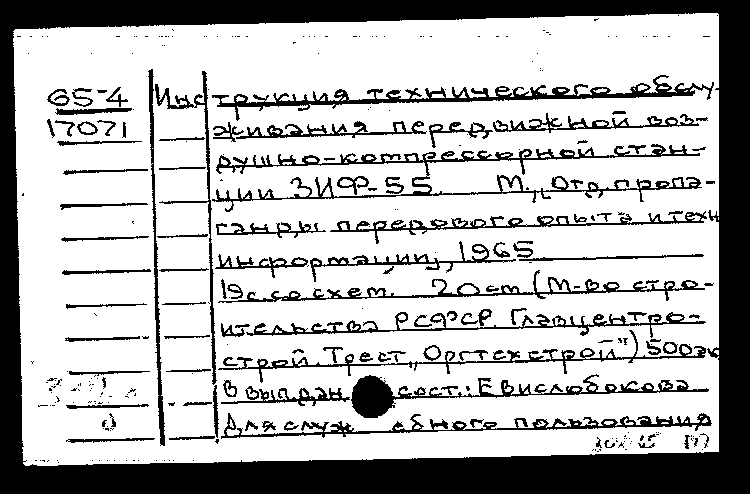 65-4 Инструкция технического обслу-
17071 живания передвижной воз-
душно-компрессорной стан-
ции ЗИФ-55. М., „Отд. пропа-
ганды передового опыта и техн
информации", 1965
19с. со схем. 20 см (М-во стро-
ительства РСФСР. Главцентро-
строй. Трест „Оргтехстрой") 500 эк
В вып. дан сост.: Е Вислобокова
Для служ ебного пользования